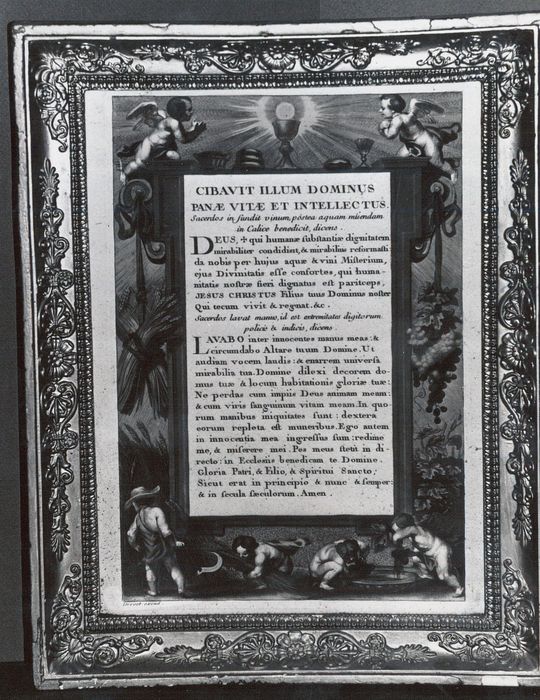 CIBAVIT ILLUM DOMINUS
PANÆ VITÆ ET INTELLECTUS.
Sacerdos in fundit vinum, postea aquam miſendam
in Calice benedicit, dicens.
DEUS, ✝ qui humanæ ſubſtantiæ dignitatem
mirabiliter condidiſt, & mirabilius reformaſti:
da nobis per hujus aquæ & vini Miſterium,
ejus Divinitatis eſſe conſortes, qui huma-
nitatis noſtræ fieri dignatus eſt pariticeps,
JESUS CHRISTUS Filius tuus Dominus noſter
Qui tecum vivit & regnat. &c.
Sacerdos lavat manus, id est extremitates digitorum
policis & indicis, dicens
LAVABO inter innocentes manus meas: &
circumdabo Altare tuum Domine. Ut
audiam vocem laudis: & enarrem univerſa
mirabilia tua. Domine dilexi decorem do-
mus tuæ & locum habitationis gloriæ tuæ:
Ne perdas cum impiis Deus animam meam:
& cum viris ſanguinum vitam meam. In quo
rum manibus iniquitates ſunt: dextera
eorum repleta eſt muneribus. Ego autem
in innocentia mea ingreſſus ſum: redime
me, & miſerere mei. Pes meus ſtetit in di-
recto: in Eccleſiis benedicam te Domine.
Gloria Patri, & Filio, & Spiritui Sancto;
Sicut erat in principio & nunc & ſemper:
& in ſecula ſæculorum. Amen.
Drevet excud